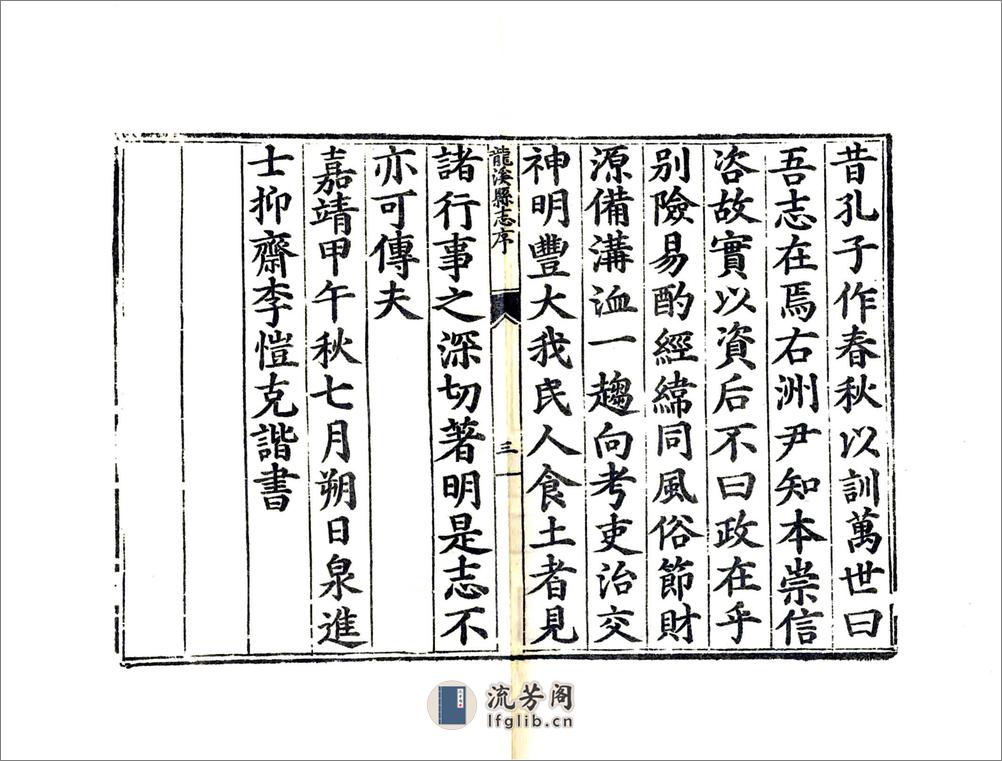 昔孔子作春秋以訓萬世曰
吾志在焉右洲尹知本崇信
咨故實以資后不曰政在乎
别險易酌經緯同風俗節財
源備溝洫一趨向考吏治交
神明豐大我民人食土者見
龍溪縣志序
三
諸行事之深切著明是志不
亦可傳夫
嘉靖甲午秋七月朔日泉進
士抑齋李愷克諧書
流芳阁
lfglib.cn